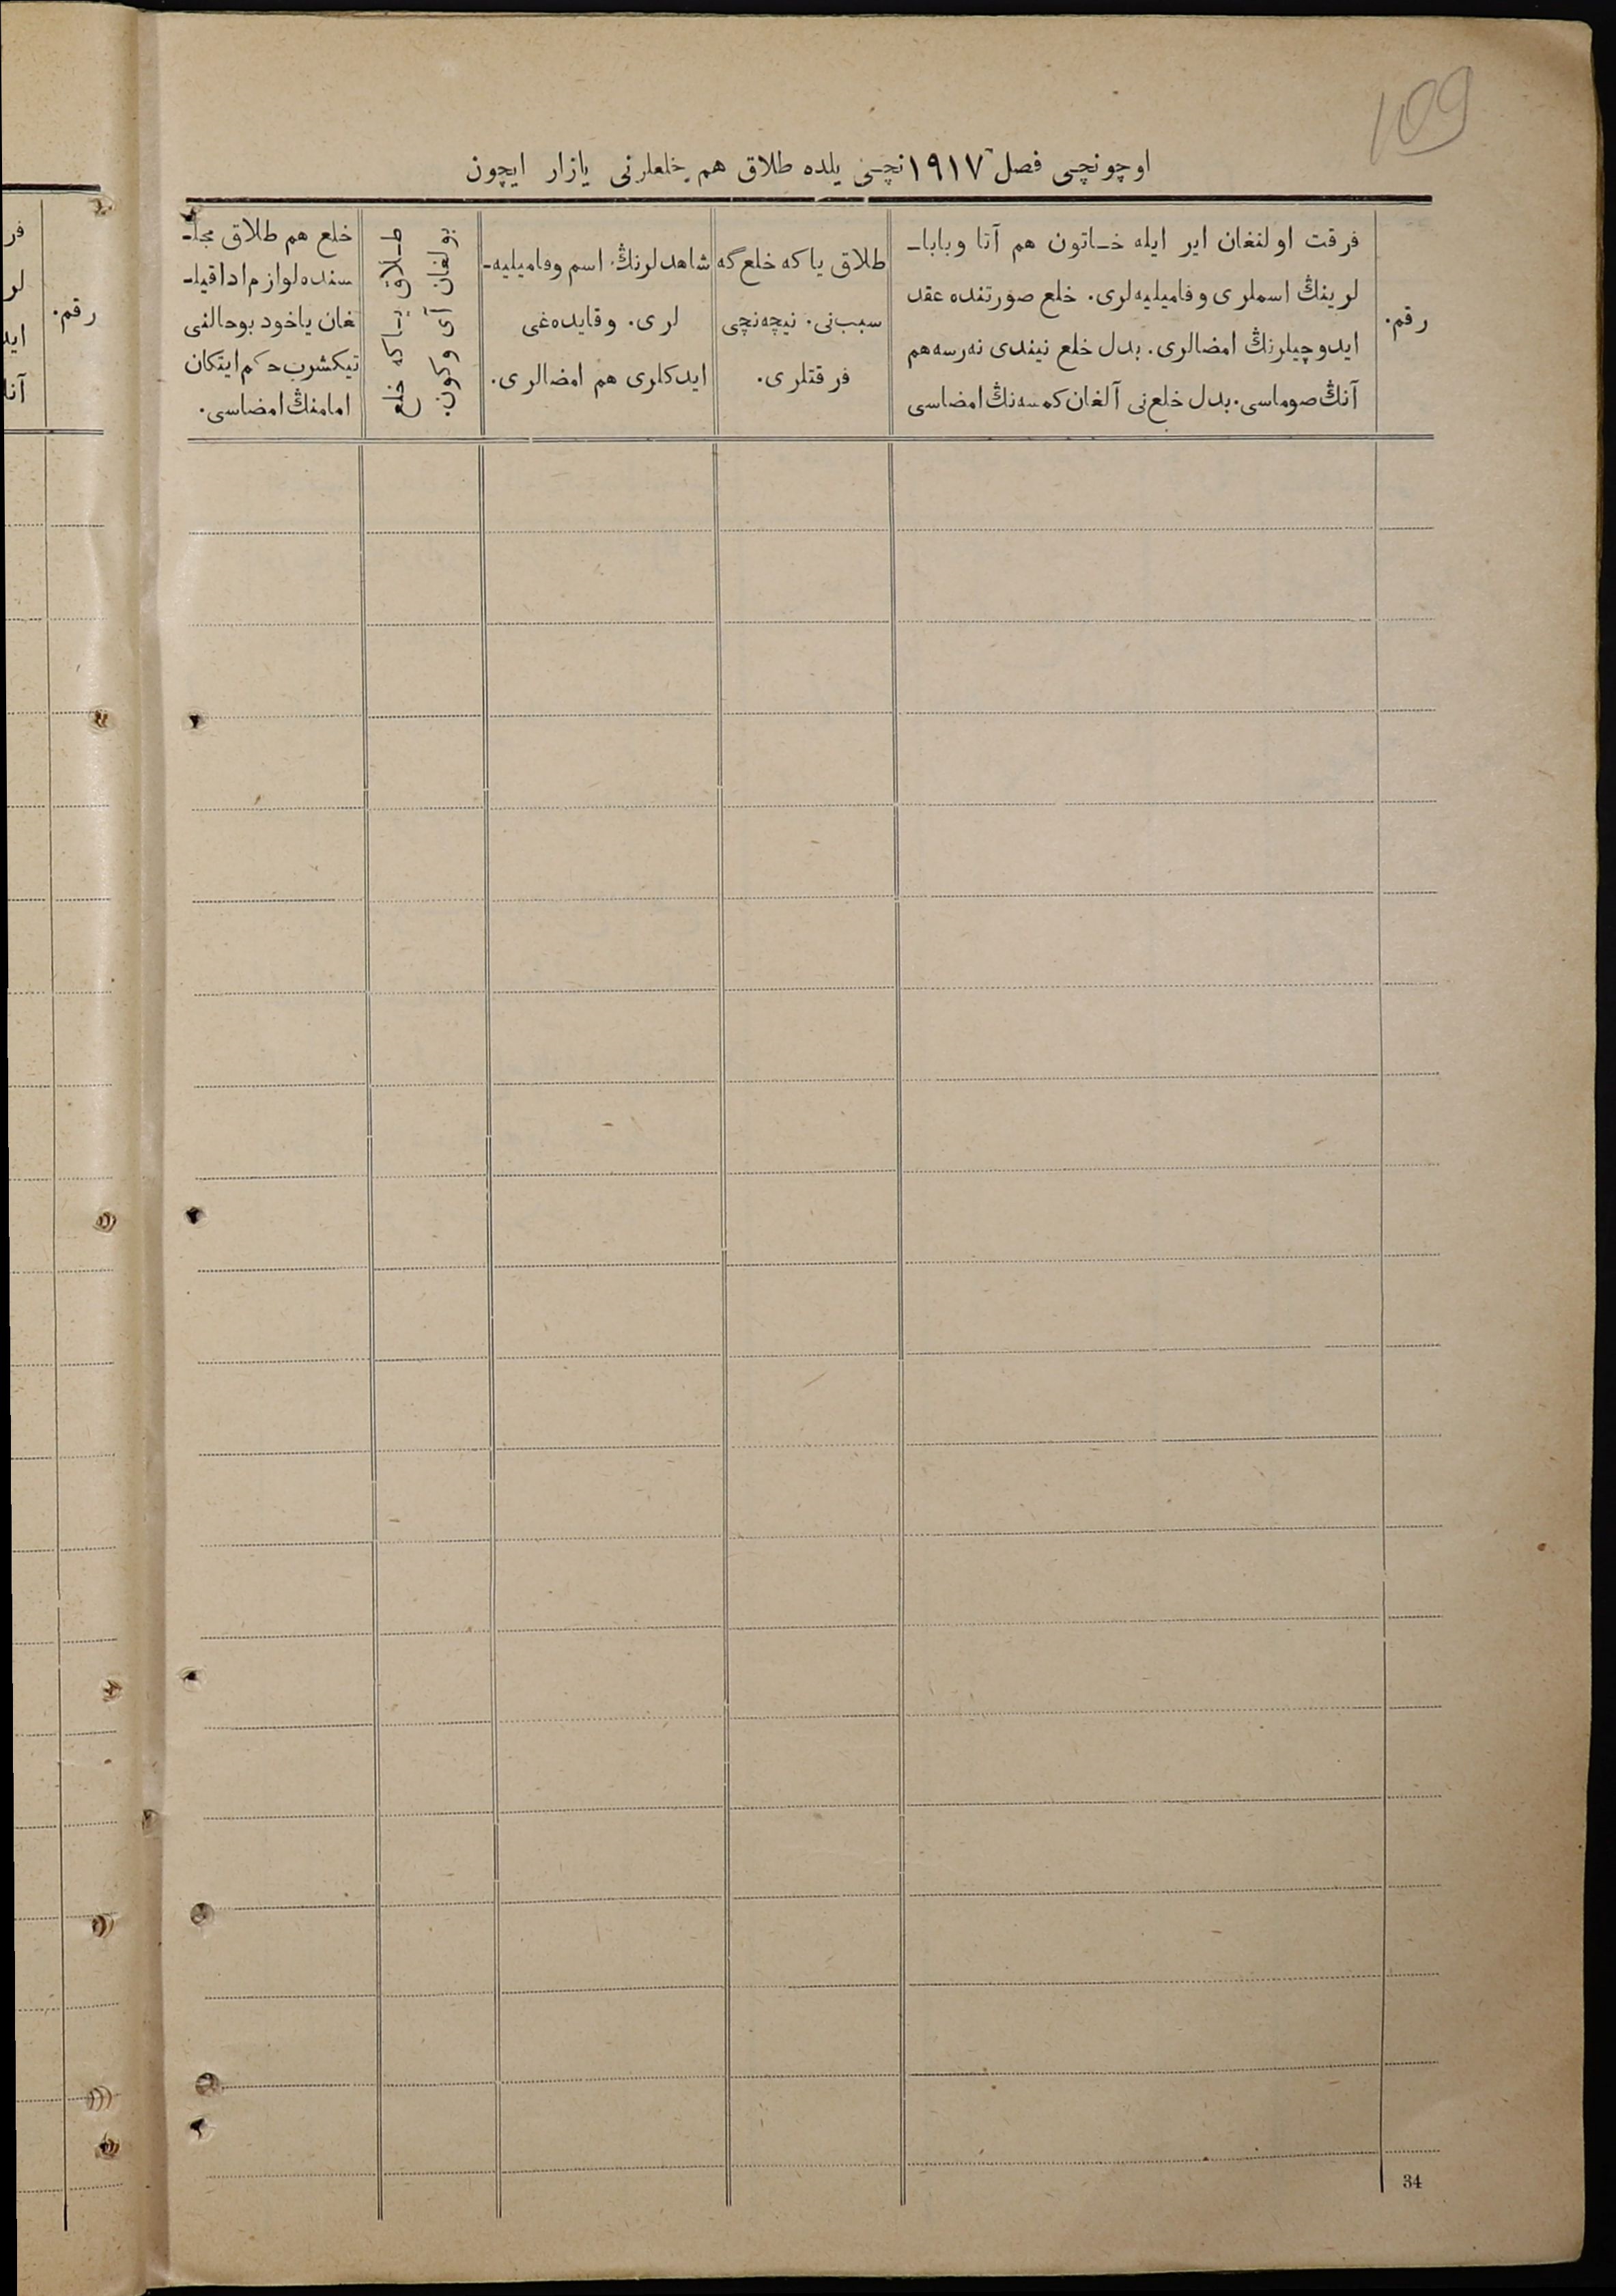 109
اوچونچی فصل ١٩١٧نچی یلده طلاق هم خلعلرنی یازار ایچون
رقم.
فرقت اولنغان ایر ایله خاتون هم آتا وبابا-
لرینڭ اسملری وفامیلیه‌لری. خلع صورتنده عقد
ایدوچیلرنڭ امضالری. بدل خلع نیندی نه‌رسه هم
آنڭ صوماسی. بدل خلع‌نی آلغان کمسه‌نڭ امضاسی
طلاق یاکه خلع‌گه
سبب‌نی. نیچه‌نچی
فرقتلری.
شاهدلرنڭ اسم وفامیلیه-
لری. وقایده‌غی
ایدکلری هم امضالری.
طلاق یاکه خلع
بولغان آی وکون.
خلع هم طلاق مجل-
سنده لوازم ادا قیل-
غان یاخود بوحالنی
تیکشرب حکم ایتکان
امامنڭ امضاسی.
34
رقم.
فر
لر
اید
آنڭ